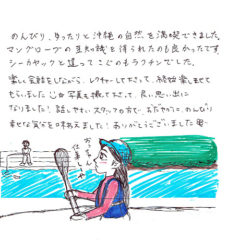 のんびり、ゆったりと沖縄の自然を満喫できました。
マングローブの豆知識を得られたのも良かったです。
シーカヤックと違ってこぐのもラクチンでした。
楽しく会話をしながら、レクチャーして下さって、終始楽しませて
もらいました♡☺写真も撮って下さって、良い思い出に
なりました！話しやすいスタッフの方で、おだやかに、のんびり
幸せな気分を味わえました！ありがとうございました
お父さん
仕事しぃや